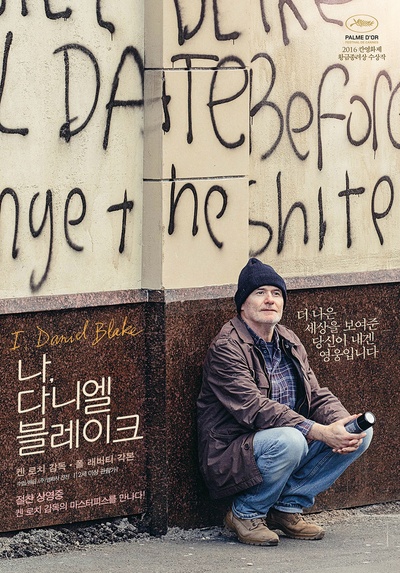 BLAKE
L DATE Before
nge + the shite
PALME D'OR
FESTIVAL DE CANNES
2016 칸영화제
황금종려상 수상작
더 나은
세상을 보여준
당신이 내겐
영웅입니다
I, Daniel Blake
나,
다니엘
블레이크
켄 로치 감독 · 폴 래버티 각본
12세 이상 관람가
절찬 상영중
켄 로치 감독의 마스터피스를 만나다!